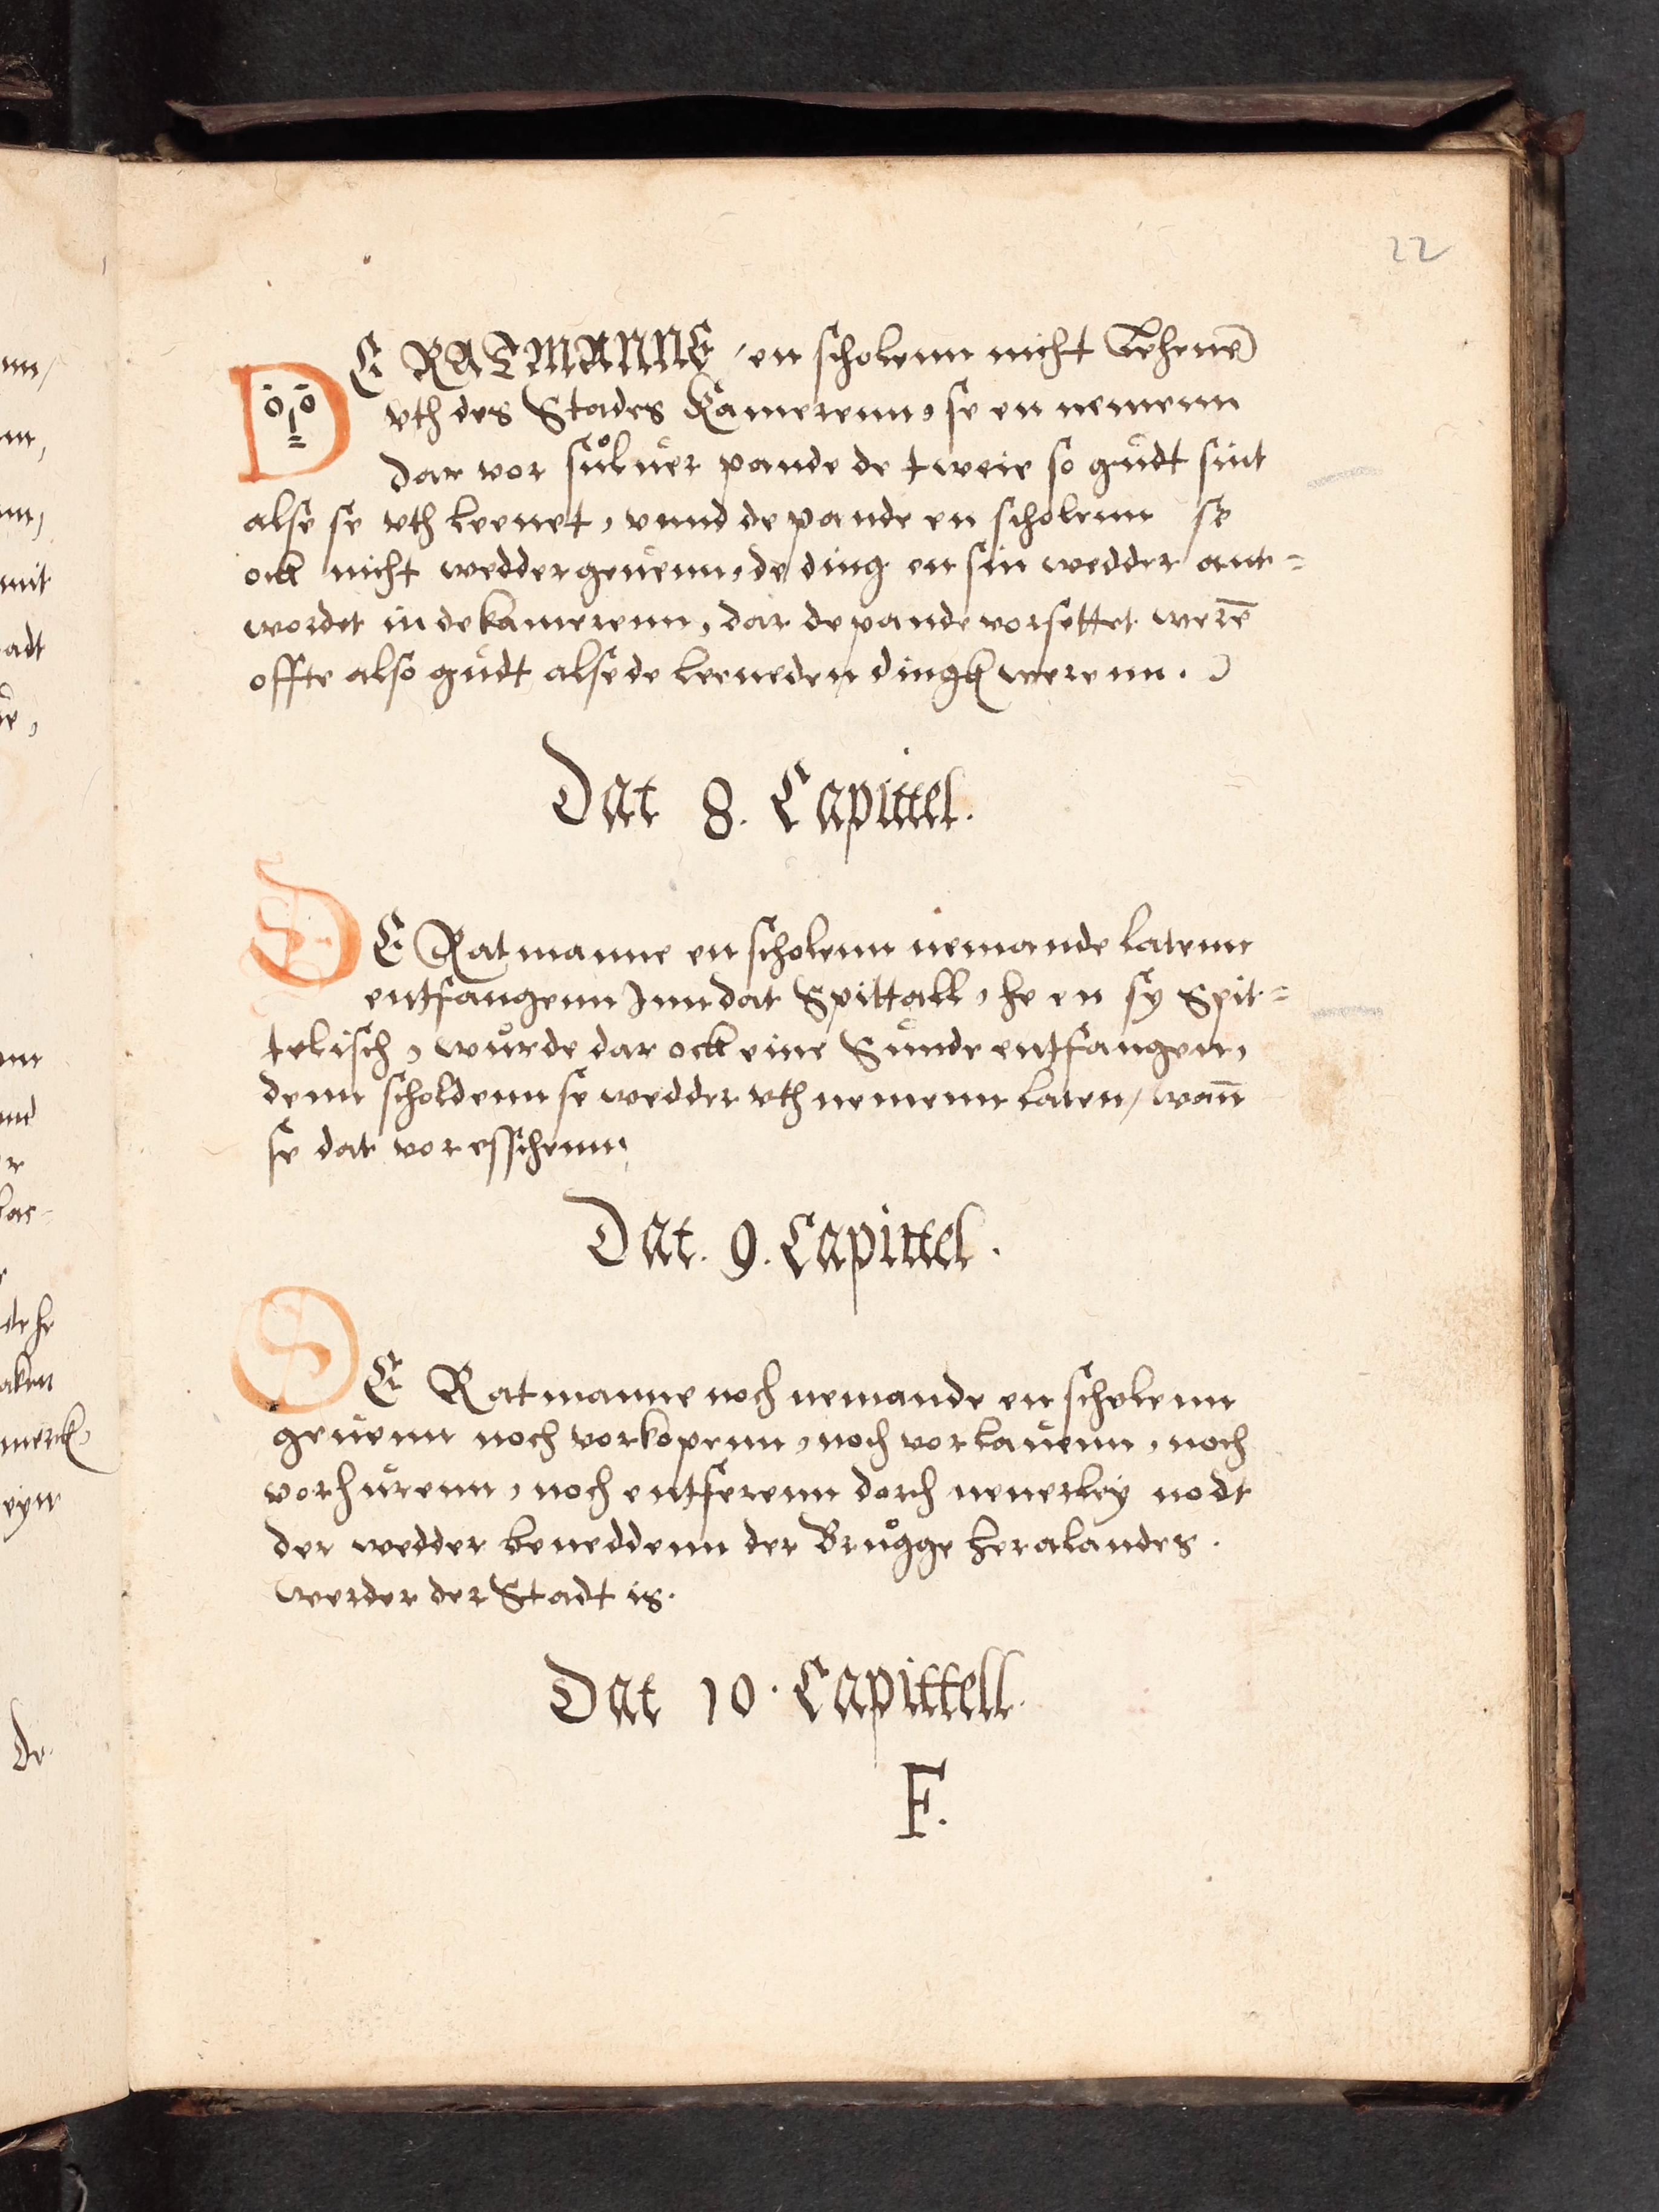 22
DE RATMANNE / en scholenn nicht Lehenē
vth des Stades Kamerenn, se en nemenn
dar vor sůluer pande de tweie so gudt sint
alse se vth leenet, vnnd de pande en scholenn se
ock nicht weddergeuenn, de ding en sin wedder ant=
wordet in de kamerenn, dar de pande vorsettet werē
offte also gudt alse de leeneden dingk werenn.
Dat 8. Capittel.
DE Ratmanne en scholenn nemande latenn
entfangenn Inn dat Spittall, he en sy Spit=
telisch, wůrde dar ock eine Sunde entfangen,
denn scholdenn se wedder vth nemenn laten, wan̄
se dat vor esschenn,
Dat. 9. Capittel.
DE Ratmanne noch nemande en scholenn
geuenn noch vorkopenn, noch vorlauenn, noch
vorhurenn, noch entferenn dorch nenerley nodt
der wedder beneddenn der Brůgge heralandes.
werder der Stadt is.
Dat 10. Capittell.
F.